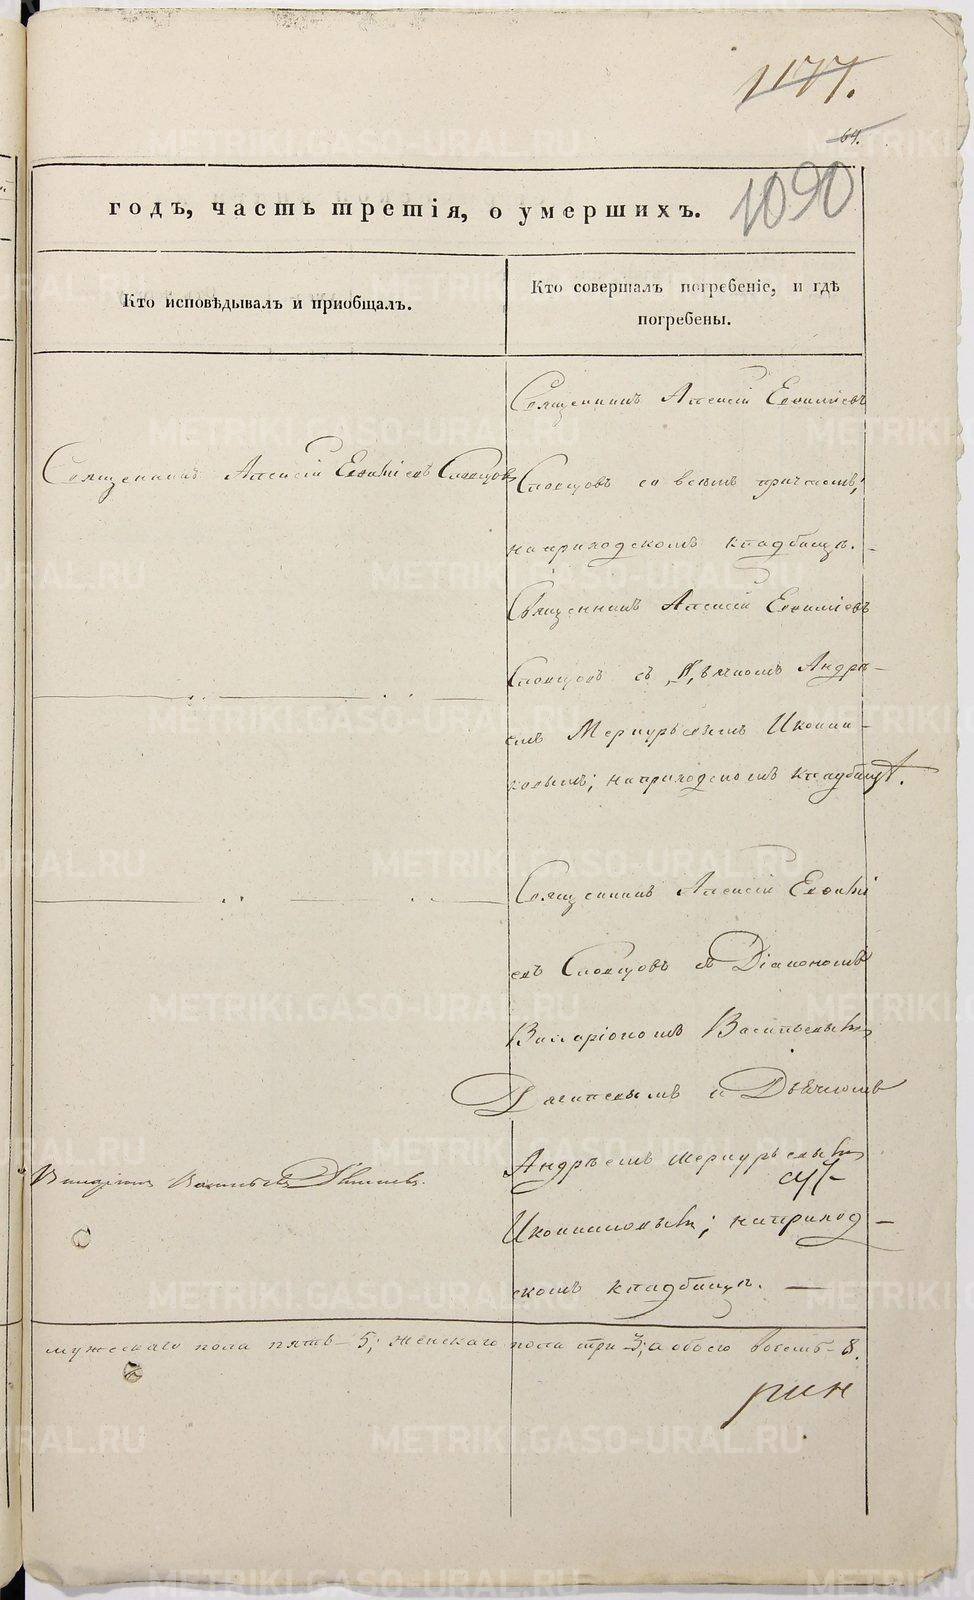 1177.
64.
1090
годъ, часть третія, о умершихъ.
Кто исповѣдывалъ и приобщалъ.
Кто совершалъ погребеніе, и гдѣ
погребены.
Священникъ Алексій Евфиміевъ
Священникъ Алексій Евфиміевъ Словцовъ
Словцовъ со всѣмъ причтомъ;
на приходскомъ кладбищѣ.
Священникъ Алексій Евфиміевъ
Словцовъ съ Дьячкомъ Андрѣ-
емъ Меркурьевымъ Иконни-
ковымъ; на приходскомъ кладбищѣ.
Священникъ Алексій Евфимі
евъ Словцовъ съ Діакономъ
Василь̀евымъ
и Дьячкомъ
Андрѣемъ Меркурьевымъ
Иконниковымъ; на приход-
скомъ кладбищѣ.
мужескаго пола пять - 5; женскаго пола три - 3; а обоего восемь - 8.
METRIKI.GASO-URAL.RU